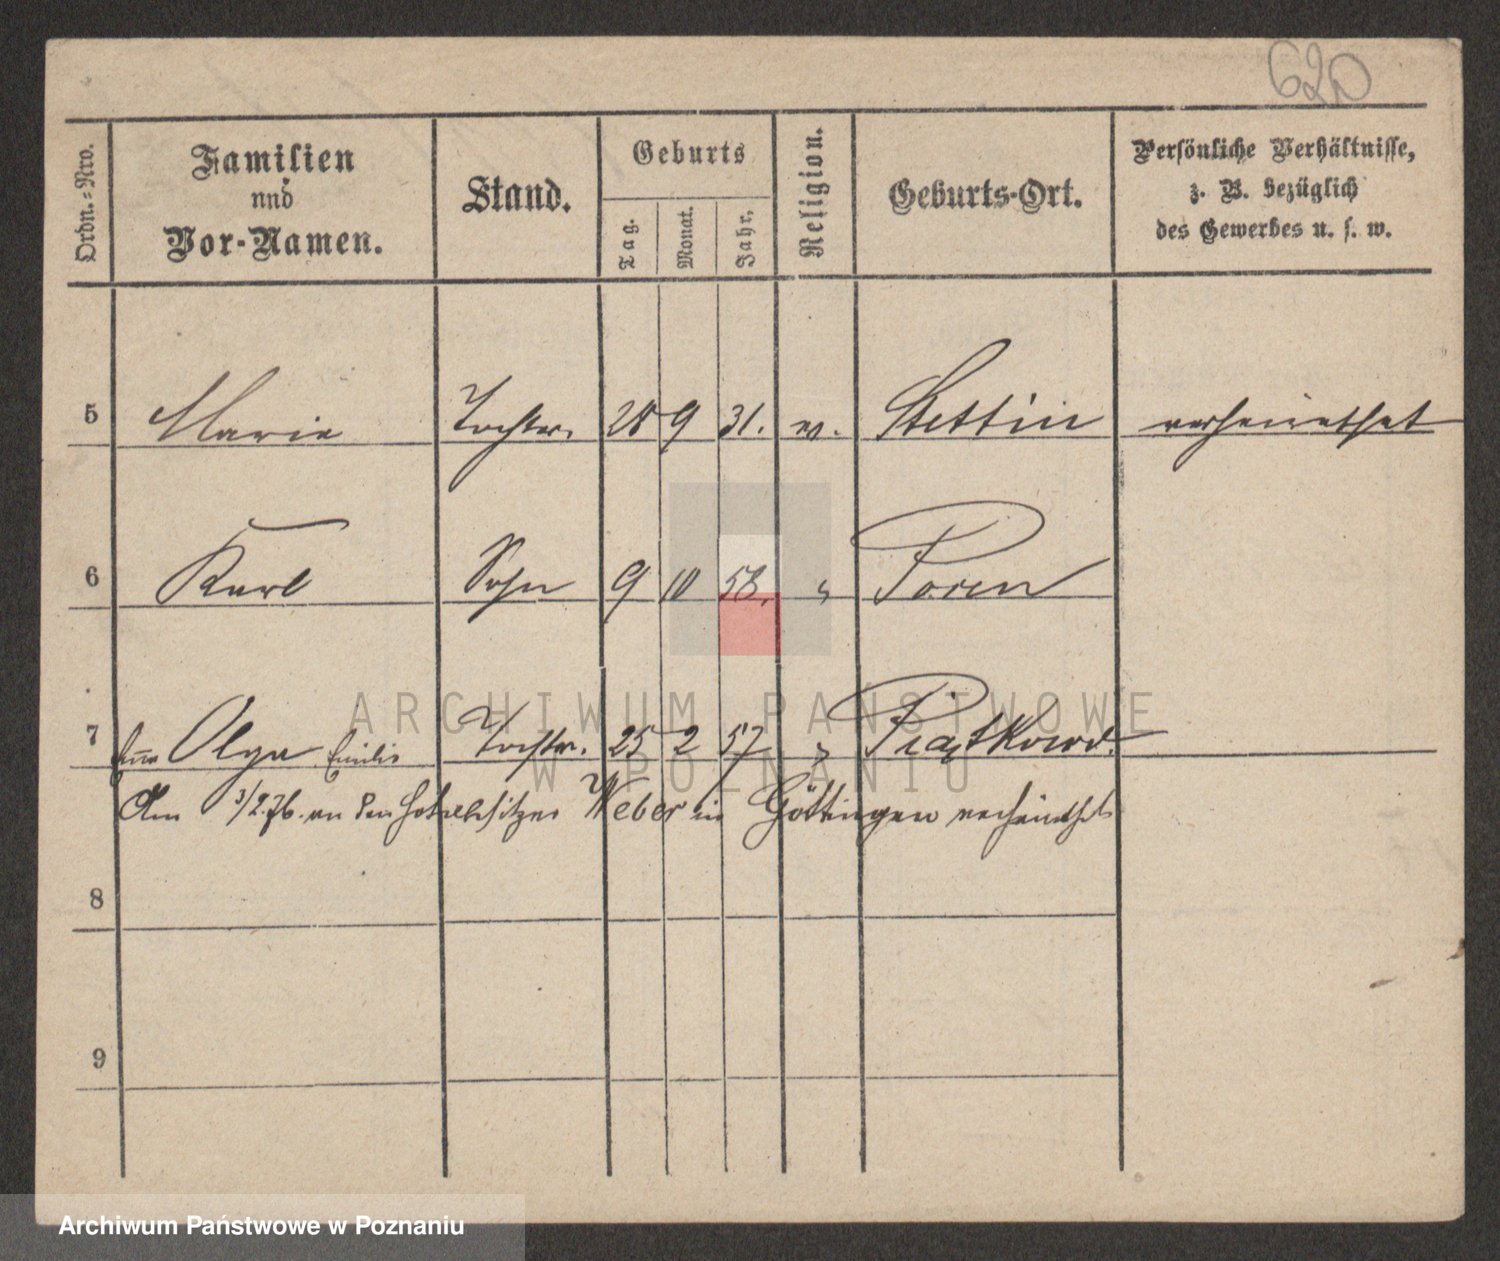 620
Ordn.-Nro. Familien und Vor-Namen. Stand. Geburts Tag. Monat. Jahr. Religion. Geburts-Ort. Persönliche Verhältnisse, z. B. bezüglich des Gewerbes u. s. w.
5 Marie Tochter. 28 9 31. ev. Stettin verheirathet
6 Karl Sohn 9 10 58. " Posen
7 Olga Emilie Tochter. 25 2 57 " Piątkowo.
Am 3/2.76. an den Hotelbesitzer Weber in Göttingen verheirathet
8
9
ARCHIWUM PAŃSTWOWE
W POZNANIU
Archiwum Państwowe w Poznaniu